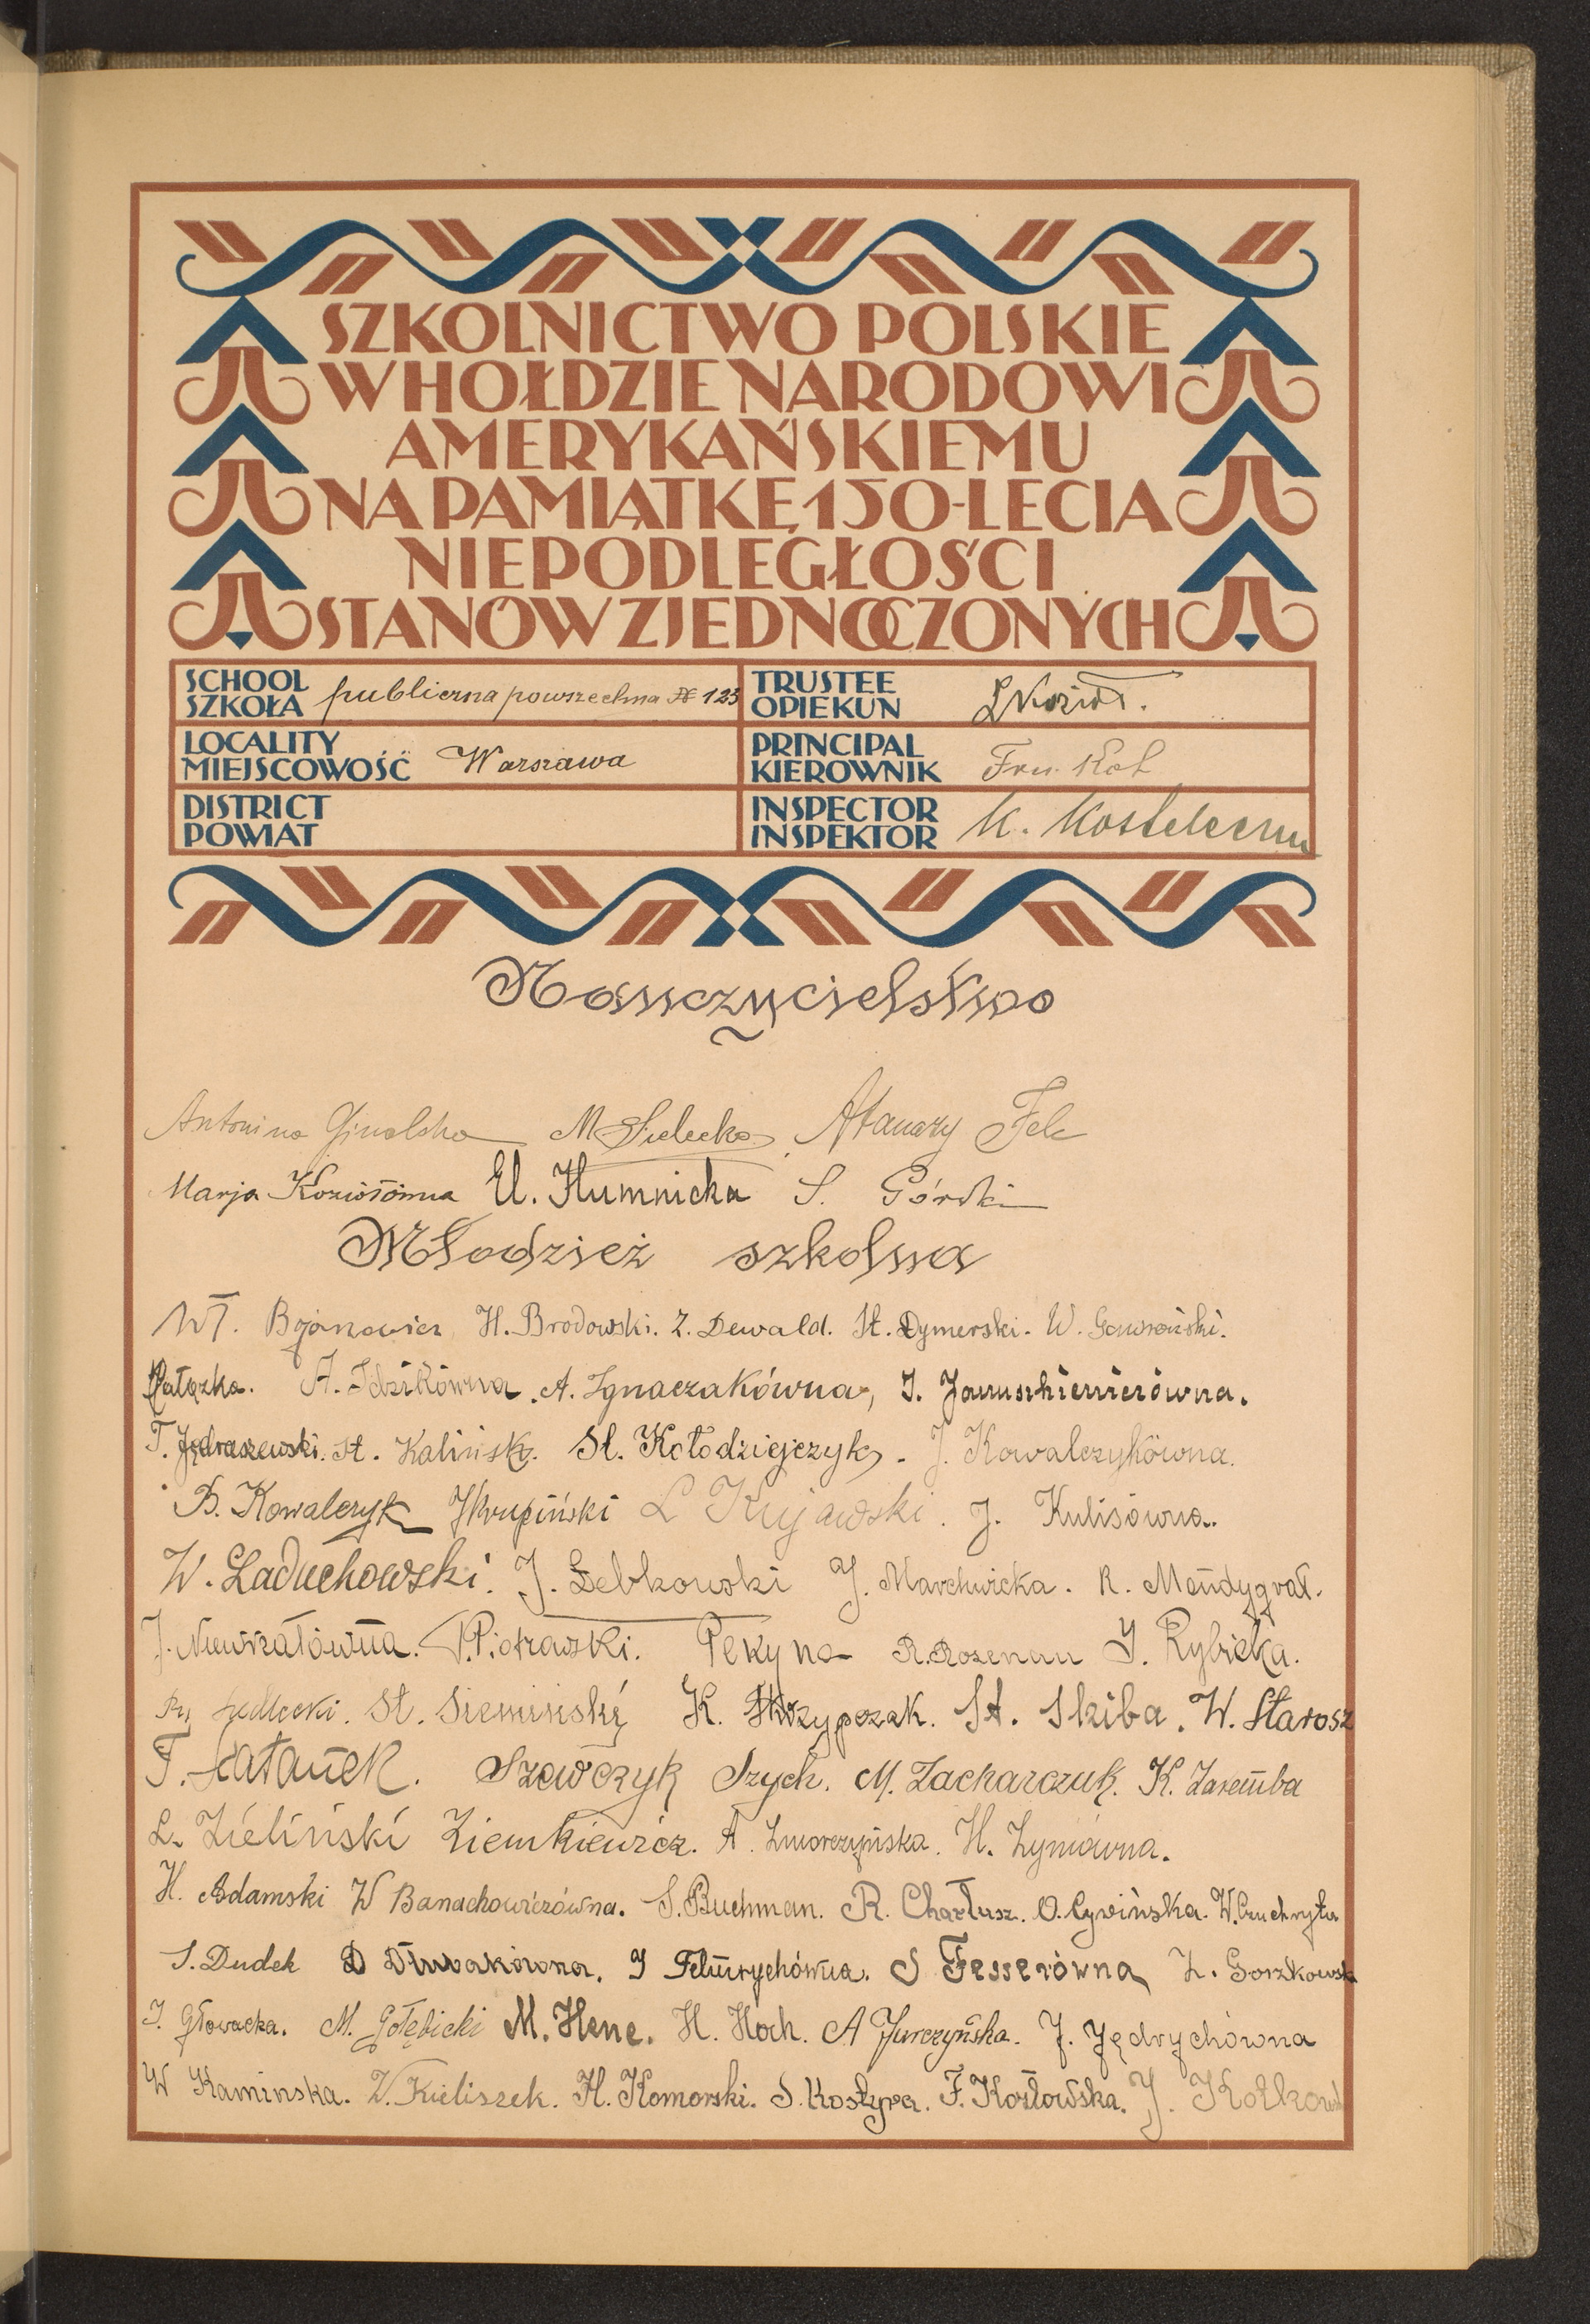 SZKOLNICTWO POLSKIE
W HOŁDZIE NARODOWI
AMERYKAŃSKIEMU
NA PAMIĄTKĘ 150-LECIA
NIEPODLEGŁOŚCI
STANÓW ZJEDNOCZONYCH
SCHOOL
SZKOŁA publiczna powszechna № 123
TRUSTEE
OPIEKUN
LOCALITY
MIEJSCOWOŚĆ Warszawa
PRINCIPAL
KIEROWNIK
DISTRICT
POWIAT
INSPECTOR
INSPEKTOR K.
Nauczycielstwo
Antonina M Sielecka Atanazy Felc
Marja Koziołówna El. Humnicka S. Górski
Młodzież szkolna
Wł. Bojanowicz H. Brodowski. Z. Dewald. St. Dymerski. W. Gawroński.
Gałązka. A. Idzikówna. A. Ignaczakówna, J. Januszkiewiczówna.
T. Jędraszewski. St. Kaliński. St. Kołodziejczyk. J. Kowalczykówna.
B. Kowalczyk J Krupiński L Kujawski. J. Kulisówna.
W. Laduchowski. J. Lebkowski J. Marchwicka. R. Mendygrał.
J. Niewrzałówna. T. Piotrowski. Pekyna R. Rozenau J. Rybicka.
Siedlecki. St. Siemiński K. Skrzypczak. St. Skiba. W. Starosz
T. Szatanek. Szewczyk Szych. M. Zacharczuk. K. Zaremba
L. Zieliński Ziemkiewicz. A. Zmorzyńska. H. Zymówna.
H. Adamski W Banachowiczówna. S. Buchman. R. Charłusz. O. Cywińska. W.
S. Dudek D Dłubakówna. J Felmrychówna. S Fesserówna Z. Gorzkowsk
J. Głowacka. M. Gołębicki M. Hene. H. Hoch. A Jurczyńska. J. Jędrychówna
W Kaminska. W. Kieliszek. H. Komorski. S. Kostyra. F. Kozłowska. J.